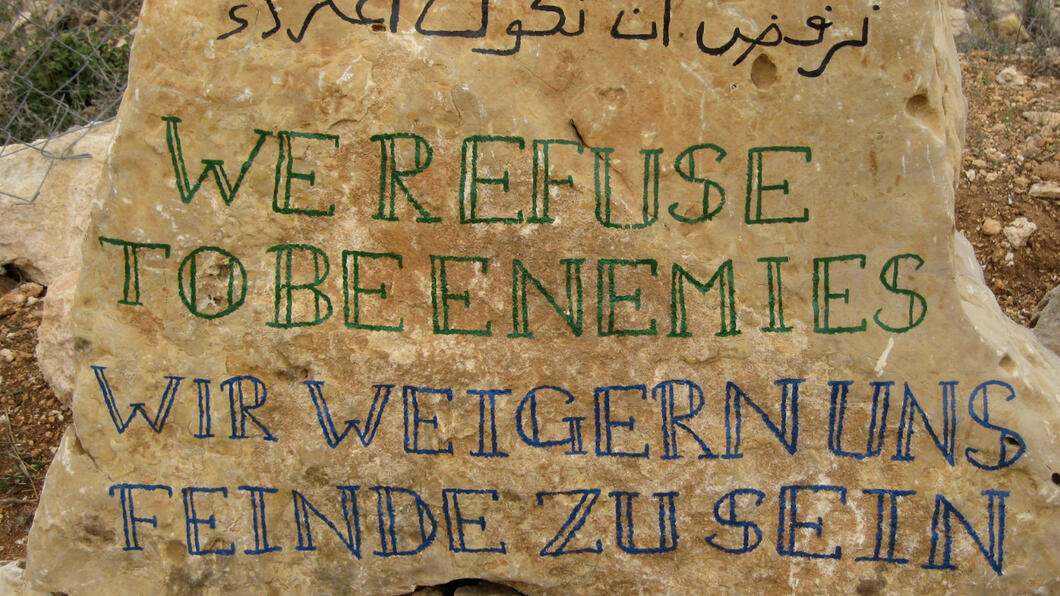 نرفض ان نكون اعداء
WE REFUSE
TO BE ENEMIES
WIR WEIGERN UNS
FEINDE ZU SEIN